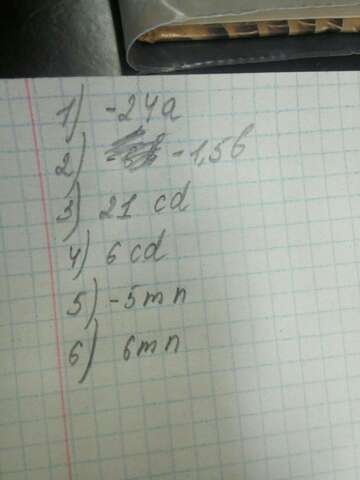 1) -24a
2) -1,5b
3) 21 cd
4) 6 cd
5) -5mn
6) 6mn